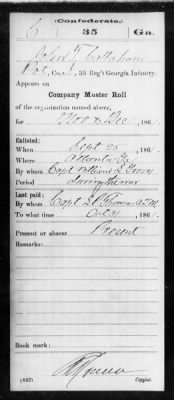 (Confederate.)
C 35 Ga.
Callaham
, Co. , 35 Reg't Georgia Infantry.
Appears on
Company Muster Roll
of the organization named above,
for Nov & Dec , 186 .
Enlisted:
When Sept 23 , 186 .
Where Atlanta Ga
By whom Capt William L.
Period During the war
Last paid:
By whom Capt Thomas
To what time Oct 31 , 186 .
Present or absent Present
Remarks:
Book mark:
(642) Copyist.